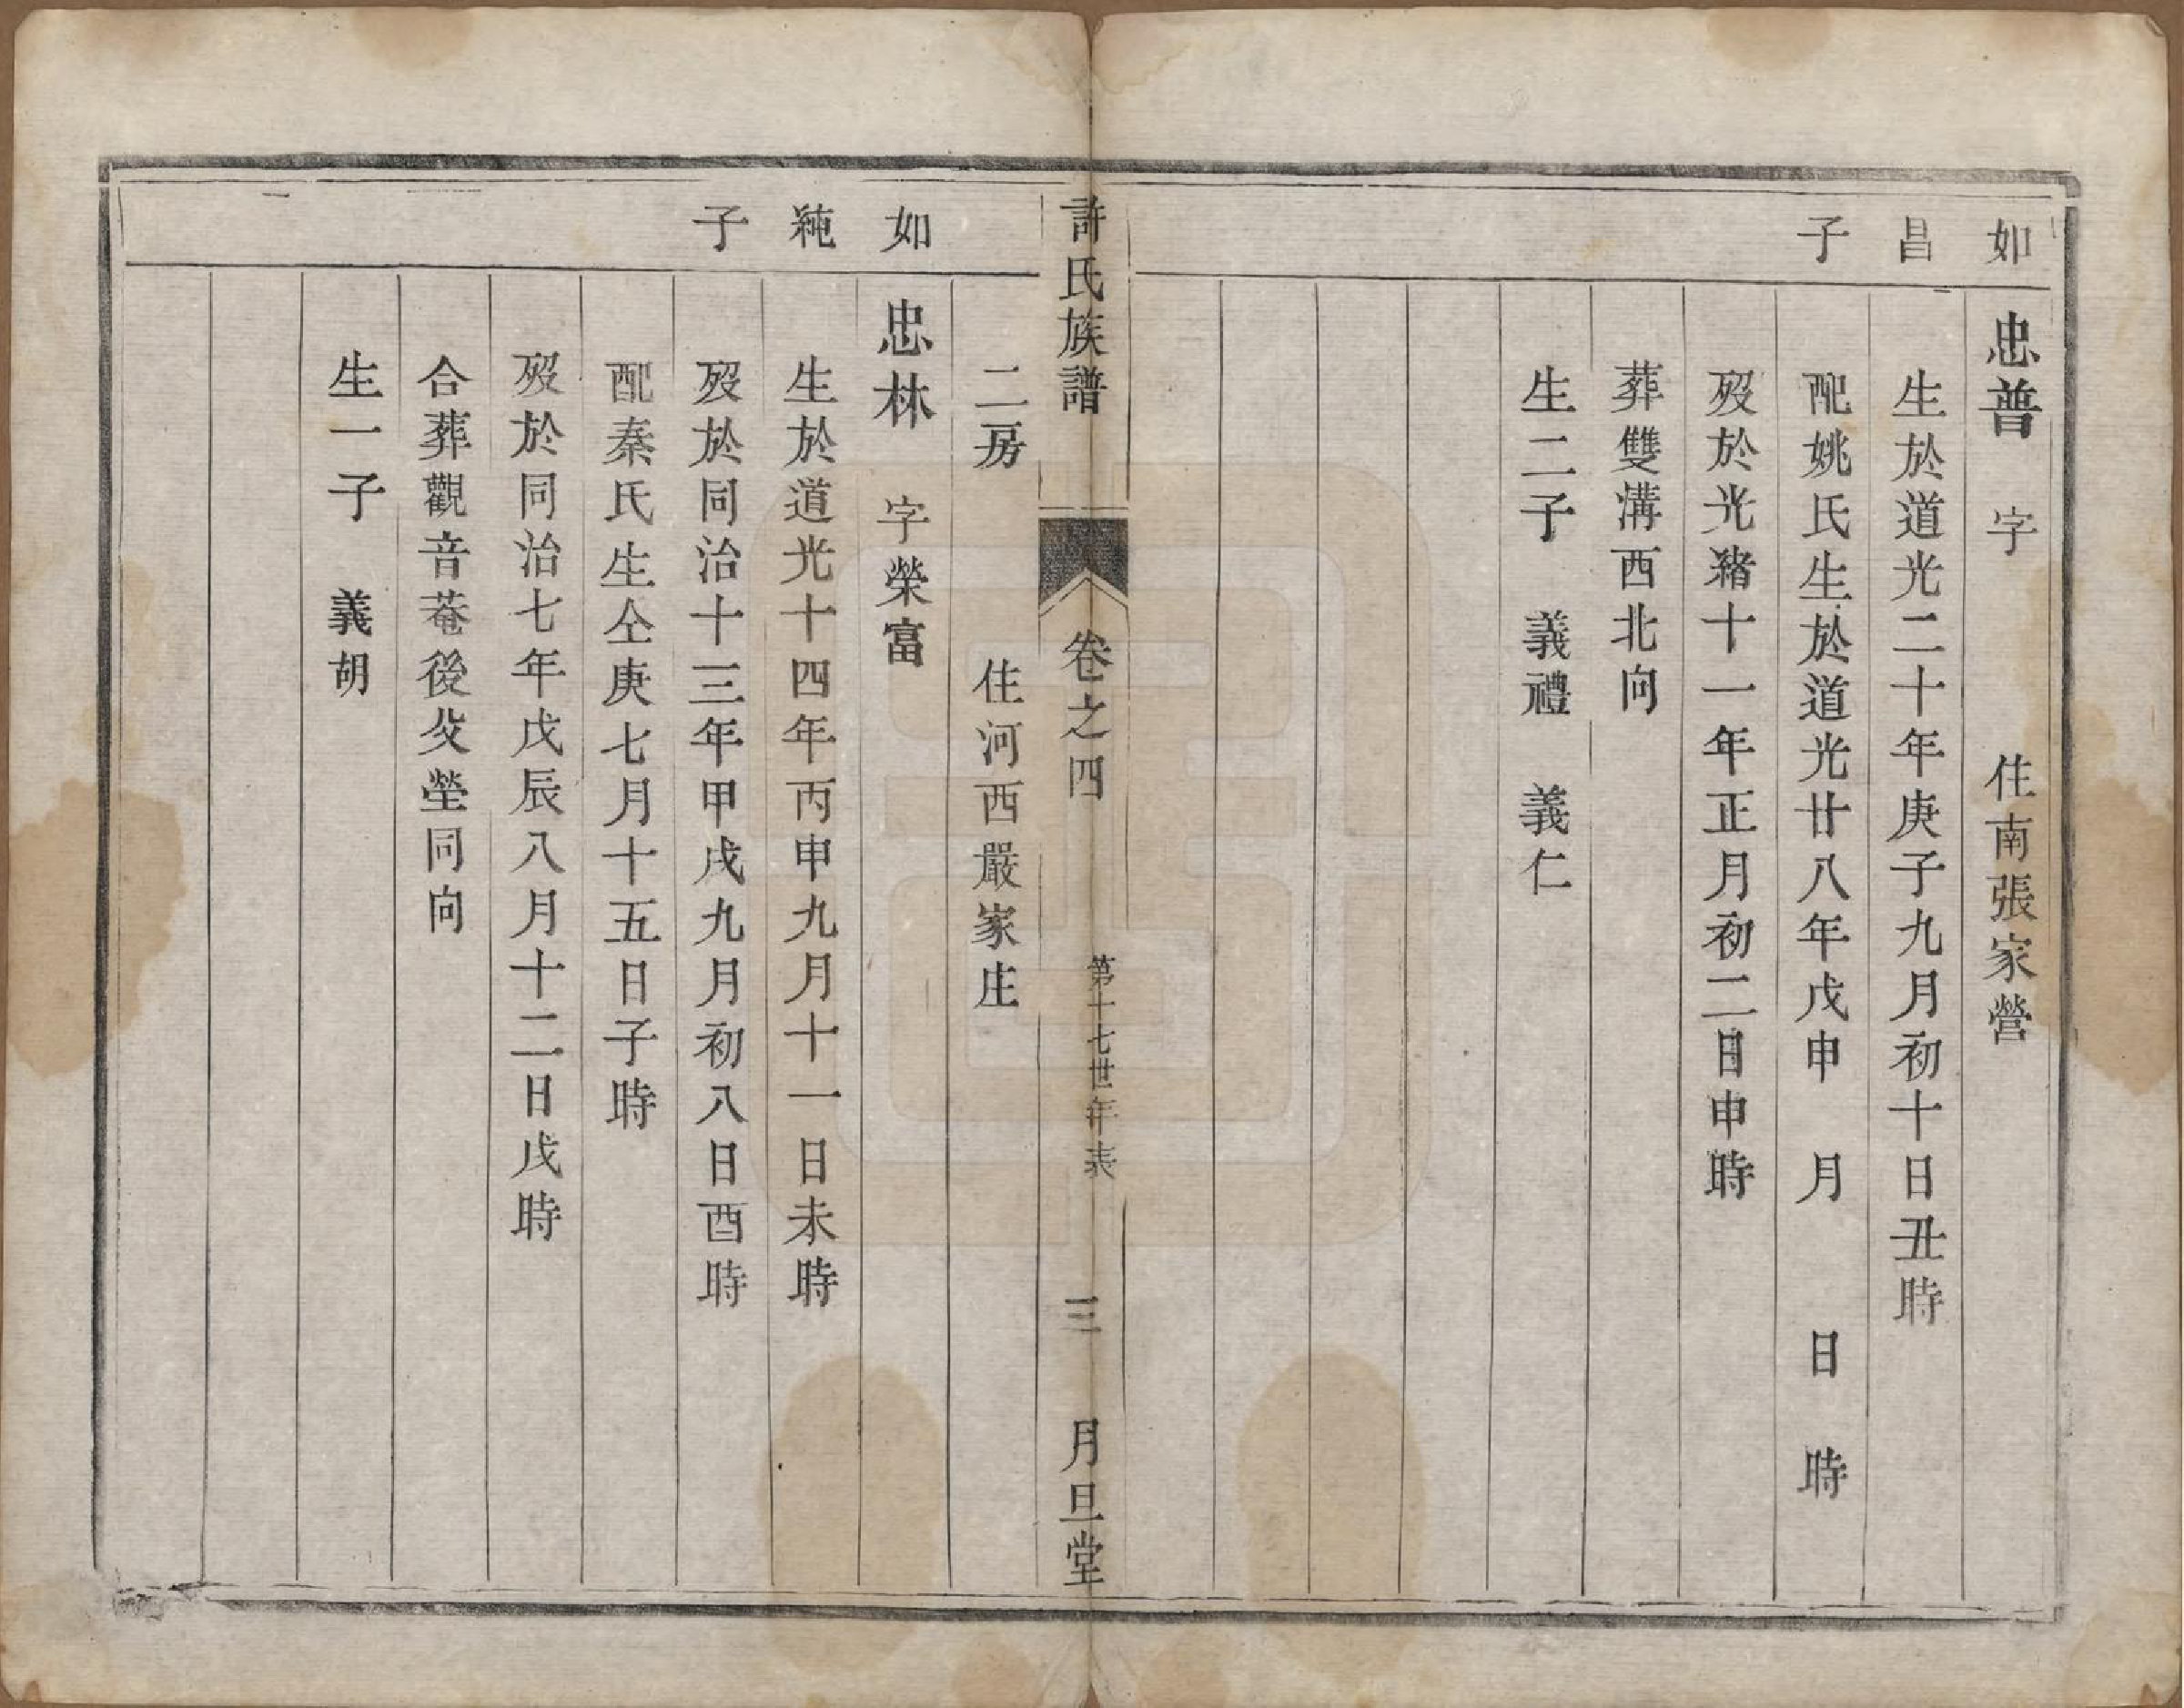 如昌子
忠普　字　住南張家營
生於道光二十年庚子九月初十日丑時
配姚氏生於道光廿八年戊申　月　日　時
歿於光緒十一年正月初二日申時
葬雙溝西北向
生二子　義禮　義仁
許氏族譜　卷之四　第十七世年表　三　月旦堂
二房　住河西嚴家庄
如純子
忠林　字榮富
生於道光十四年丙申九月十一日未時
歿於同治十三年甲戌九月初八日酉時
配秦氏生仝庚七月十五日子時
歿於同治七年戊辰八月十二日戌時
合葬觀音菴後父塋同向
生一子　義胡